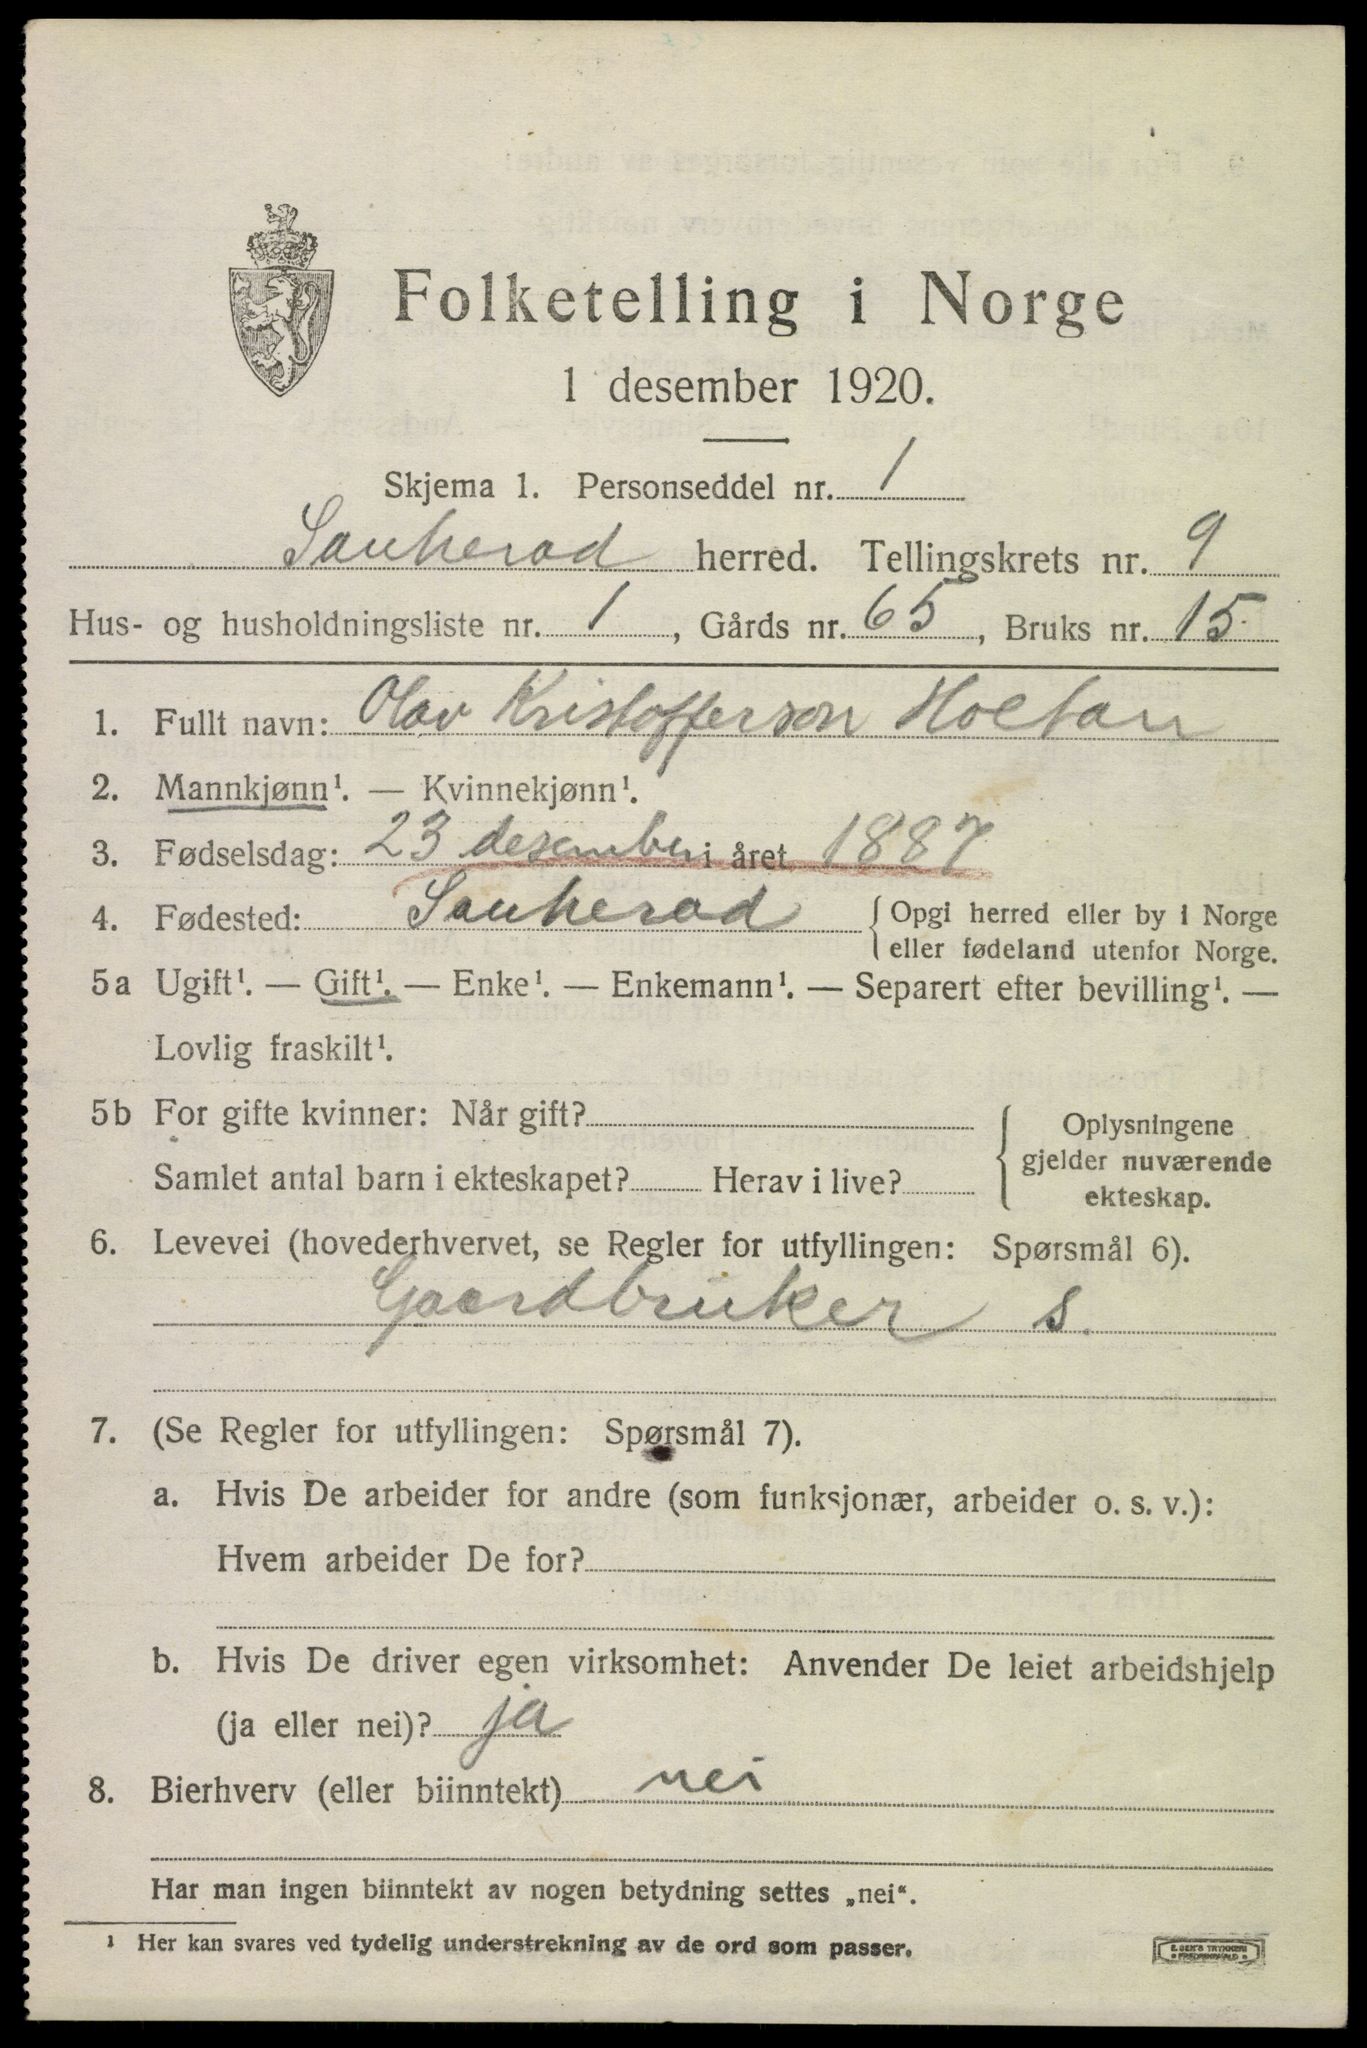 Folketelling i Norge
1 desember 1920.
Skjema 1. Personseddel nr. 1
Sauherad herred. Tellingskrets nr. 9
Hus- og husholdningsliste nr. 1, Gårds nr. 65, Bruks nr. 15.
1. Fullt navn: Olav Kristofferson Holtan
2. Mannkjønn¹. — Kvinnekjønn¹.
3. Fødselsdag: 23 desember i året 1887
4. Fødested: Sauherad {Opgi herred eller by i Norge
eller fødeland utenfor Norge.
5a Ugift¹. — Gift¹. — Enke¹. — Enkemann¹. — Separert efter bevilling¹. —
Lovlig fraskilt¹.
5b For gifte kvinner: Når gift?
Samlet antal barn i ekteskapet? Herav i live?
Oplysningene
gjelder nuværende
ekteskap.
6. Levevei (hovederhvervet, se Regler for utfyllingen: Spørsmål 6).
Gaardbruker s.
7. (Se Regler for utfyllingen: Spørsmål 7).
a. Hvis De arbeider for andre (som funksjonær, arbeider o. s. v.):
Hvem arbeider De for?
b. Hvis De driver egen virksomhet: Anvender De leiet arbeidshjelp
(ja eller nei)? ja
8. Bierhverv (eller biinntekt) nei
Har man ingen biinntekt av nogen betydning settes „nei“.
¹ Her kan svares ved tydelig understrekning av de ord som passer.